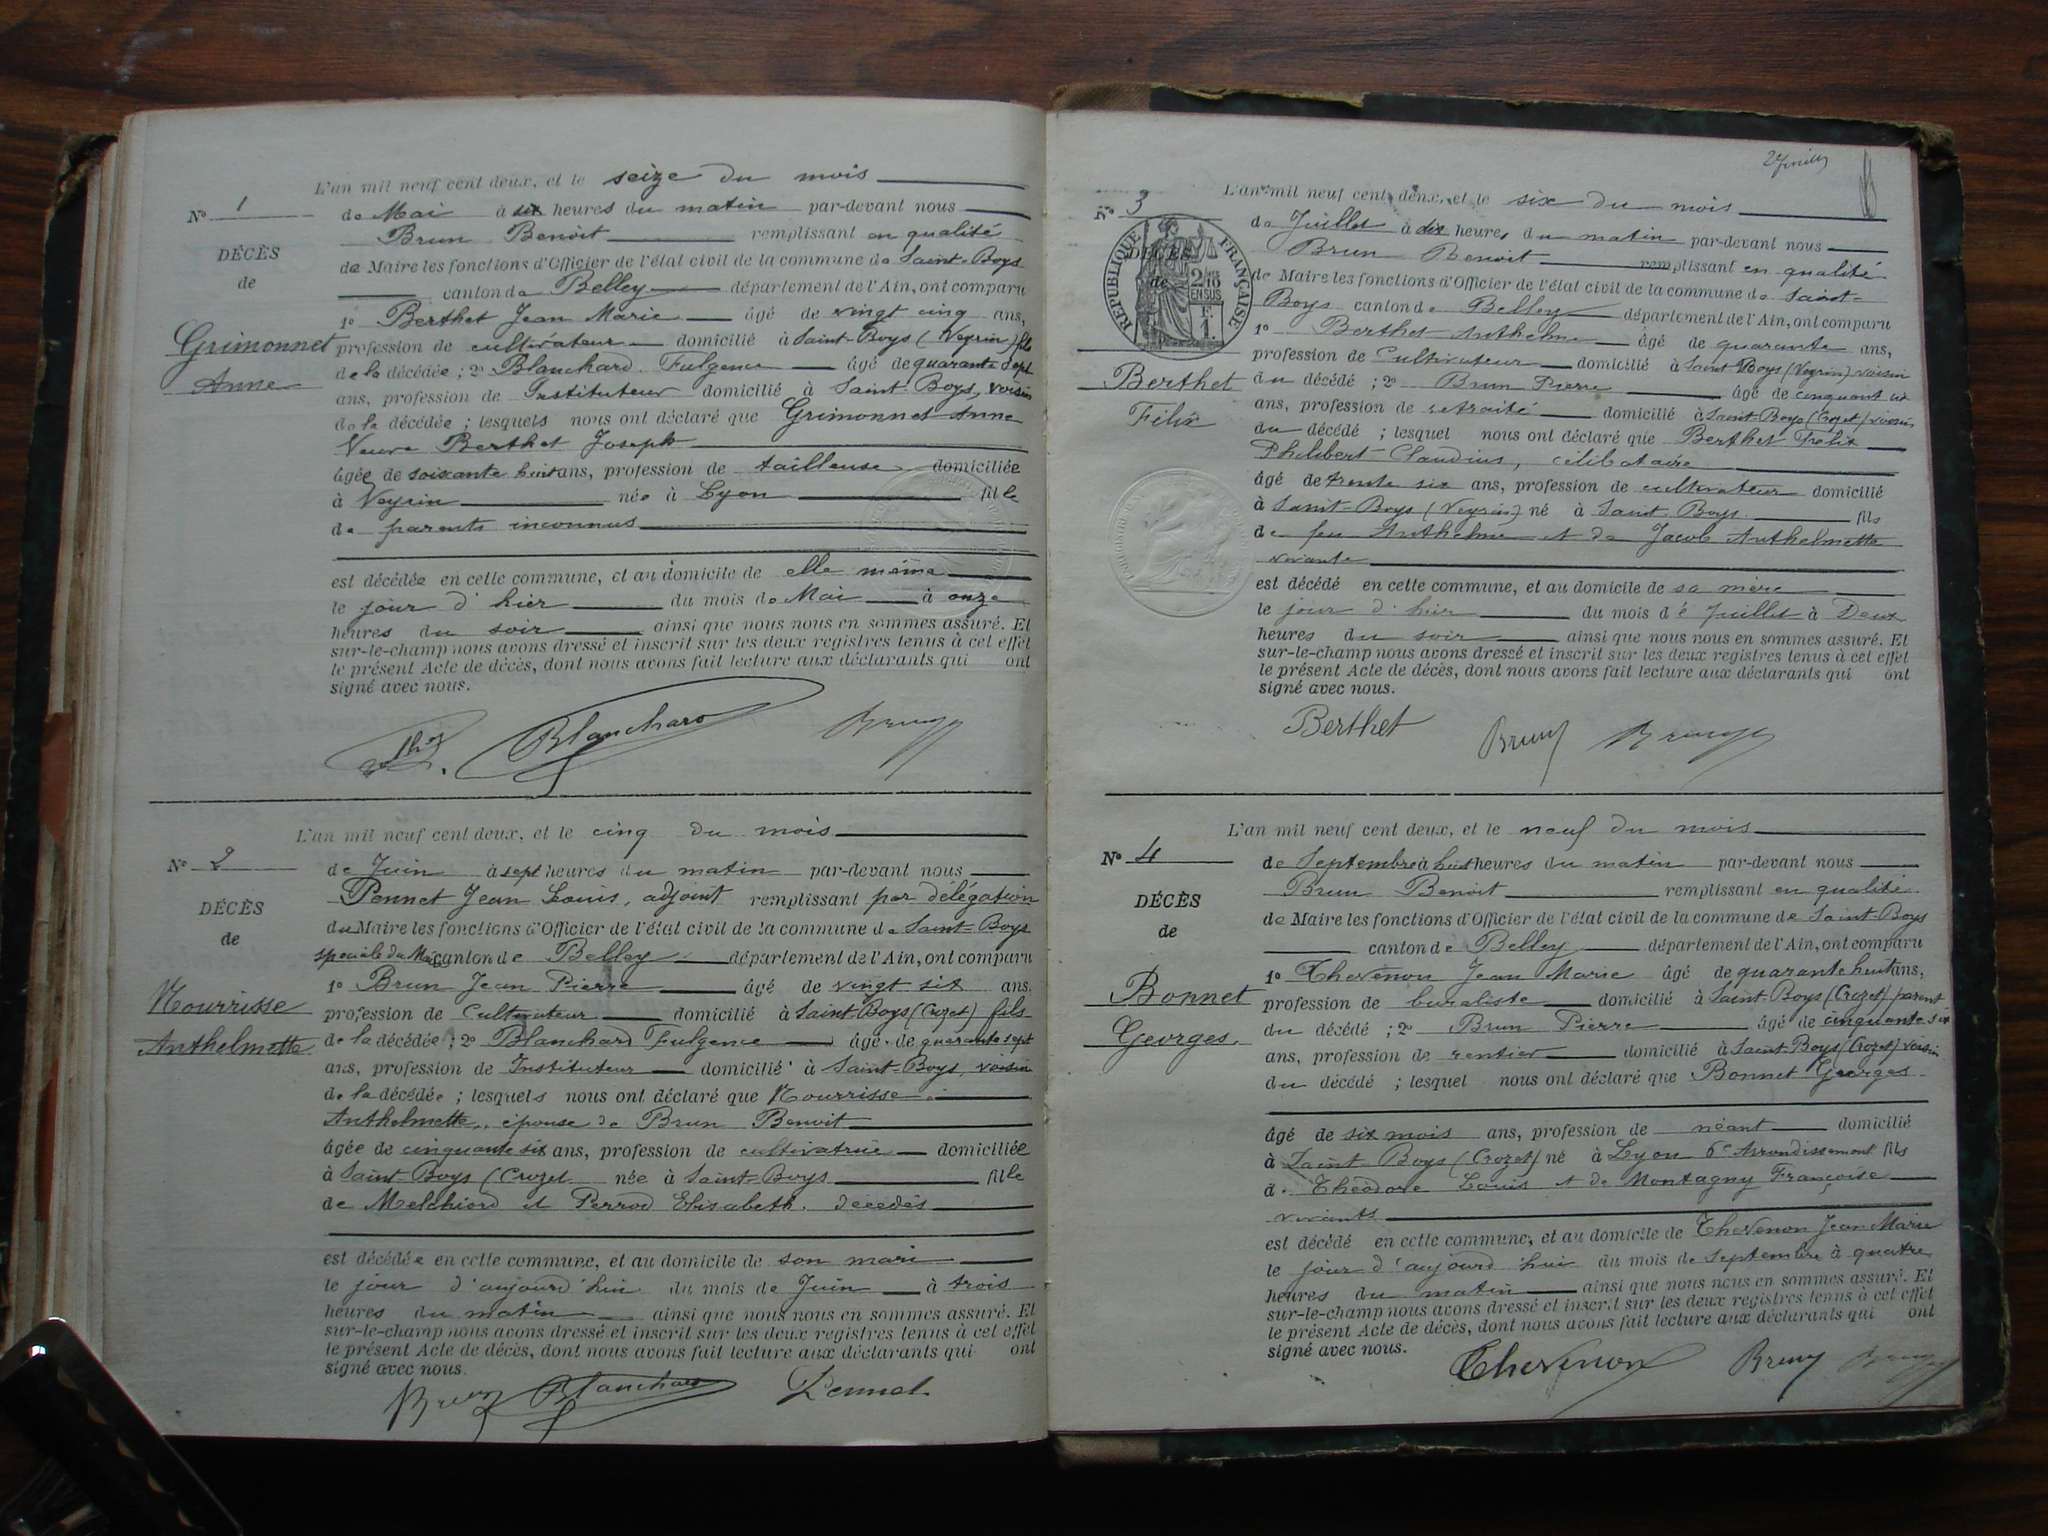 L'an mil neuf cent deux, et le seize du mois
N° 1
de Mai à six heures du matin par-devant nous
Brun Benoit remplissant en qualité
DÉCÈS
de Maire les fonctions d'Officier de l'état civil de la commune de Saint-Boys
de
canton de Belley département de l'Ain, ont comparu
1° Berthet Jean Marie âgé de vingt cinq ans,
Grimonnet
profession de cultivateur domicilié à Saint-Boys (Veyrin) fils
Anne
de la décédée ; 2° Blanchard Fulgence âgé de quarante sept
ans, profession de Instituteur domicilié à Saint-Boys, voisin
de la décédée ; lesquels nous ont déclaré que Grimonnet Anne
Veuve Berthet Joseph
âgée de soixante huit ans, profession de tailleuse domiciliée
à Veyrin née à Lyon fille
de parents inconnus
est décédée en cette commune, et au domicile de elle même
le jour d'hier du mois de Mai à onze
heures du soir ainsi que nous nous en sommes assuré. Et
sur-le-champ nous avons dressé et inscrit sur les deux registres tenus à cet effet
le présent Acte de décès, dont nous avons fait lecture aux déclarants qui ont
signé avec nous.
Blanchard Brun
L'an mil neuf cent deux, et le cinq du mois
N° 2
de Juin à sept heures du matin par-devant nous
Pennet Jean Louis, adjoint remplissant par délégation
DÉCÈS
du Maire les fonctions d'Officier de l'état civil de la commune de Saint-Boys
de
spéciale du Maire canton de Belley département de l'Ain, ont comparu
1° Brun Jean Pierre âgé de vingt six ans,
Nourrisse
profession de Cultivateur domicilié à Saint Boys (Crozet) fils
Anthelmette
de la décédée ; 2° Blanchard Fulgence âgé de quarante sept
ans, profession de Instituteur domicilié à Saint-Boys, voisin
de la décédée ; lesquels nous ont déclaré que Nourrisse
Anthelmette, épouse de Brun Benoit
âgée de cinquante six ans, profession de cultivatrice domiciliée
à Saint Boys (Crozet née à Saint-Boys fille
de Melchiord et Perrod Elisabeth. décédés
est décédée en cette commune, et au domicile de son mari
le jour d'aujourd'hui du mois de Juin à trois
heures du matin ainsi que nous nous en sommes assuré. Et
sur-le-champ nous avons dressé et inscrit sur les deux registres tenus à cet effet
le présent Acte de décès, dont nous avons fait lecture aux déclarants qui ont
signé avec nous.
Brun Blanchard Pennet
L'an mil neuf cent deux, et le six du mois
N° 3
de Juillet à dix heures du matin par-devant nous
Brun Benoit remplissant en qualité
DÉCÈS
de
RÉPUBLIQUE FRANÇAISE
2/10 EN SUS
F. 1.
de Maire les fonctions d'Officier de l'état civil de la commune de Saint-
Boys canton de Belley département de l'Ain, ont comparu
1° Berthet Anthelme âgé de quarante ans,
profession de Cultivateur domicilié à Saint Boys (Veyrin) voisin
Berthet
du décédé ; 2° Brun Pierre âgé de cinquant six
Félix
ans, profession de retraité domicilié à Saint-Boys (Crozet) voisin
du décédé ; lesquel nous ont déclaré que Berthet Félix
Philibert Claudius, célibataire
âgé de trente six ans, profession de cultivateur domicilié
à Saint-Boys (Veyrin) né à Saint Boys fils
de feu Anthelme et de Jacob Anthelmette
vivante
est décédé en cette commune, et au domicile de sa mère
le jour d'hier du mois de Juillet à Deux
heures du soir ainsi que nous nous en sommes assuré. Et
sur-le-champ nous avons dressé et inscrit sur les deux registres tenus à cet effet
le présent Acte de décès, dont nous avons fait lecture aux déclarants qui ont
signé avec nous.
Berthet Brun Brun
L'an mil neuf cent deux, et le neuf du mois
N° 4
de Septembre à huit heures du matin par-devant nous
Brun Benoit remplissant en qualité
DÉCÈS
de Maire les fonctions d'Officier de l'état civil de la commune de Saint-Boys
de
canton de Belley département de l'Ain, ont comparu
1° Thevenon Jean Marie âgé de quarante huit ans,
Bonnet
profession de buraliste domicilié à Saint-Boys (Crozet) parent
Georges.
du décédé ; 2° Brun Pierre âgé de cinquante six
ans, profession de rentier domicilié à Saint-Boys (Crozet) voisin
du décédé ; lesquel nous ont déclaré que Bonnet Georges
âgé de six mois ans, profession de néant domicilié
à Saint-Boys (Crozet) né à Lyon 6e Arrondissement fils
de Théodore Louis et de Montagny Françoise
vivants
est décédé en cette commune, et au domicile de Thevenon Jean Marie
le jour d'aujourd'hui du mois de Septembre à quatre
heures du matin ainsi que nous nous en sommes assuré. Et
sur-le-champ nous avons dressé et inscrit sur les deux registres tenus à cet effet
le présent Acte de décès, dont nous avons fait lecture aux déclarants qui ont
signé avec nous.
Thevenon Brun Brun